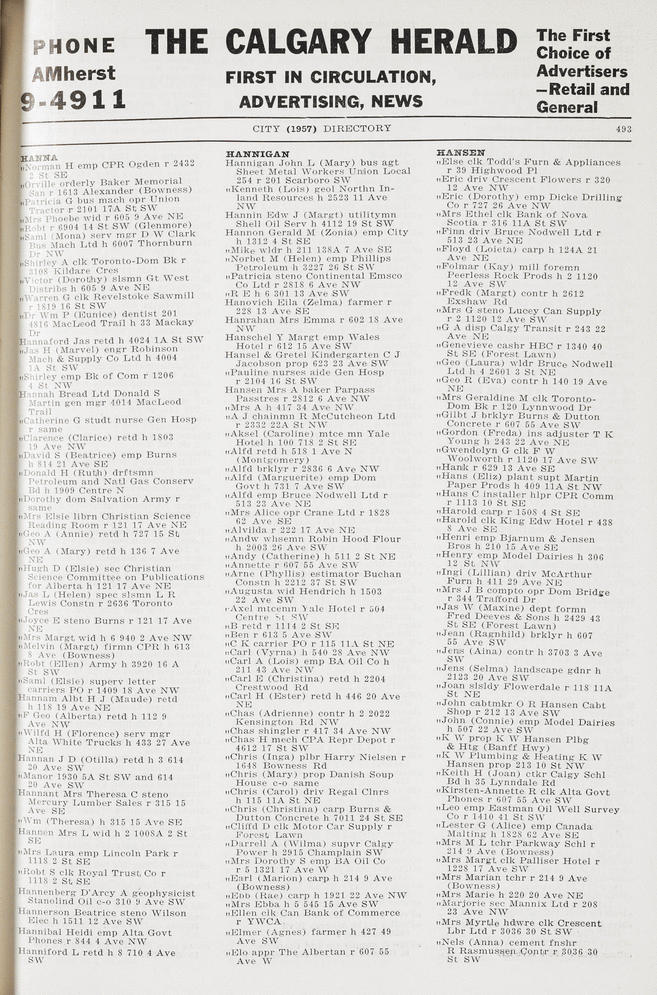 PHONE
AMherst
9-4911
THE CALGARY HERALD
FIRST IN CIRCULATION,
ADVERTISING, NEWS
The First
Choice of
Advertisers
—Retail and
General
CITY (1957) DIRECTORY
493
HANNA
„Norman H emp CPR Ogden r 2432
2 St SE
„Orville orderly Baker Memorial
San r 1613 Alexander (Bowness)
„Patricia G bus mach opr Union
Tractor r 2101 17A St SW
„Mrs Phoebe wid r 605 9 Ave NE
„Robt r 6904 14 St SW (Glenmore)
„Saml (Mona) serv mgr D W Clark
Bus Mach Ltd h 6007 Thornburn
Dr NW
„Shirley A clk Toronto-Dom Bk r
3108 Kildare Cres
„Victor (Dorothy) slsmn Gt West
Distribs h 605 9 Ave NE
„Warren G clk Revelstoke Sawmill
r 1819 16 St SW
„Dr Wm P (Eunice) dentist 201
4816 MacLeod Trail h 33 Mackay
Dr
Hannaford Jas retd h 4024 1A St SW
„Jas H (Marvel) engr Robinson
Mach & Supply Co Ltd h 4004
1A St SW
„Shirley emp Bk of Com r 1206
4 St NW
Hannah Bread Ltd Donald S
Martin gen mgr 4014 MacLeod
Trail
„Catherine G studt nurse Gen Hosp
r same
„Clarice (Clarice) retd h 1803
19 Ave NW
„David S (Beatrice) emp Burns
h 814 21 Ave SE
„Donald H (Ruth) drftsmn
Petroleum and Natl Gas Conserv
Bd h 1909 Centre N
„Dorothy dom Salvation Army r
same
„Mrs Elsie librn Christian Science
Reading Room r 121 17 Ave NE
„Geo A (Annie) retd h 727 15 St
NW
„Geo A (Mary) retd h 136 7 Ave
NE
„Hugh D (Elsie) sec Christian
Science Committee on Publications
for Alberta h 121 17 Ave NE
„Jas L (Helen) spec slsmn L R
Lewis Constn r 2636 Toronto
Cres
„Joyce E steno Burns r 121 17 Ave
NE
„Mrs Margt wid h 6 940 2 Ave NW
„Melvin (Margt) firmn CPR h 613
8 Ave (Bowness)
„Robt (Ellen) Army h 3920 16 A
St SW
„Saml (Elsie) superv letter
carriers PO r 1409 18 Ave NW
Hannam Albt H J (Maude) retd
h 118 19 Ave NE
„F Geo (Alberta) retd h 112 9
Ave NW
„Wilfd H (Florence) serv mgr
Alta White Trucks h 433 27 Ave
NE
Hannan J D (Otilla) retd h 3 614
20 Ave SW
„Manor 1930 5A St SW and 614
20 Ave SW
Hannant Mrs Theresa C steno
Mercury Lumber Sales r 315 15
Ave SE
„Wm (Theresa) h 315 15 Ave SE
Hannen Mrs L wid h 2 1008A 2 St
SE
„Mrs Laura emp Lincoln Park r
1118 2 St SE
„Robt S clk Royal Trust Co r
1118 2 St SE
Hannenberg D'Arcy A geophysicist
Stanolind Oil c-o 310 9 Ave SW
Hannerson Beatrice steno Wilson
Elec h 1511 12 Ave SW
Hannibal Heidi emp Alta Govt
Phones r 844 4 Ave NW
Hanniford L retd h 8 710 4 Ave
SW
HANNIGAN
Hannigan John L (Mary) bus agt
Sheet Metal Workers Union Local
254 r 201 Scarboro SW
„Kenneth (Lois) geol Northn In-
land Resources h 2523 11 Ave
NW
Hannin Edw J (Margt) utilitymn
Shell Oil Serv h 4112 19 St SW
Hannon Gerald M (Zonia) emp City
h 1312 4 St SE
„Mike wldr h 211 138A 7 Ave SE
„Norbet M (Helen) emp Phillips
Petroleum h 3227 26 St SW
„Patricia steno Continental Emsco
Co Ltd r 2818 6 Ave NW
„R E h 6 301 13 Ave SW
Hanovich Eila (Zelma) farmer r
228 13 Ave SE
Hanrahan Mrs Emma r 602 18 Ave
NW
Hanschel Y Margt emp Wales
Hotel r 612 15 Ave SW
Hansel & Gretel Kindergarten C J
Jacobson prop 623 23 Ave SW
„Pauline nurse aide Gen Hosp
r 2104 16 St SW
Hansen Mrs A baker Parpass
Passtres r 2812 6 Ave NW
„Mrs A h 417 34 Ave NW
„A J chainmn R McCutcheon Ltd
r 2332 22A St NW
„Aksel (Caroline) mtce mn Yale
Hotel h 100 718 2 St SE
„Alfd retd h 518 1 Ave N
(Montgomery)
„Alfd brklyr r 2836 6 Ave NW
„Alfd (Marguerite) emp Dom
Govt h 731 7 Ave SW
„Alfd emp Bruce Nodwell Ltd r
513 23 Ave NE
„Mrs Alice opr Crane Ltd r 1828
62 Ave SE
„Alvilda r 222 17 Ave NE
„Andw whsemn Robin Hood Flour
h 2003 26 Ave SW
„Andy (Catherine) h 511 2 St NE
„Annette r 607 55 Ave SW
„Arne (Phyllis) estimator Buchan
Constn h 2212 37 St SW
„Augusta wid Hendrich h 1503
22 Ave SW
„Axel mtcemn Yale Hotel r 504
Centre St SW
„B retd r 1114 2 St SE
„Ben r 613 5 Ave SW
„C K carrier PO r 115 11A St NE
„Carl (Vyrna) h 540 28 Ave NW
„Carl A (Lois) emp BA Oil Co h
211 43 Ave NW
„Carl E (Christina) retd h 2204
Crestwood Rd
„Carl H (Ester) retd h 446 20 Ave
NE
„Chas (Adrienne) contr h 2 2022
Kensington Rd NW
„Chas shingler r 417 34 Ave NW
„Chas H mech CPA Repr Depot r
4612 17 St SW
„Chris (Inga) plbr Harry Nielsen r
1648 Bowness Rd
„Chris (Mary) prop Danish Soup
House c-o same
„Chris (Carol) driv Regal Clnrs
h 115 11A St NE
„Chris (Christina) carp Burns &
Dutton Concrete h 7011 24 St SE
„Cliffd D clk Motor Car Supply r
Forest Lawn
„Darrell A (Wilma) supvr Calgy
Power h 2915 Champlain SW
„Mrs Dorothy S emp BA Oil Co
r 5 1321 17 Ave W
„Earl (Marion) carp h 214 9 Ave
(Bowness)
„Ebb (Rae) carp h 1921 22 Ave NW
„Mrs Ebba h 5 545 15 Ave SW
„Ellen clk Can Bank of Commerce
r YWCA
„Elmer (Agnes) farmer h 427 49
Ave SW
„Elo appr The Albertan r 607 55
Ave W
HANSEN
„Else clk Todd's Furn & Appliances
r 39 Highwood Pl
„Eric driv Crescent Flowers r 320
12 Ave NW
„Eric (Dorothy) emp Dicke Drilling
Co r 727 26 Ave NW
„Mrs Ethel clk Bank of Nova
Scotia r 316 11A St SW
„Finn driv Bruce Nodwell Ltd r
513 23 Ave NE
„Floyd (Loieta) carp h 124A 21
Ave NE
„Folmar (Kay) mill foremn
Peerless Rock Prods h 2 1120
12 Ave SW
„Fredk (Margt) contr h 2612
Exshaw Rd
„Mrs G steno Lucey Can Supply
r 2 1120 12 Ave SW
„G A disp Calgy Transit r 243 22
Ave NE
„Genevieve cashr HBC r 1340 40
St SE (Forest Lawn)
„Geo (Laura) wldr Bruce Nodwell
Ltd h 4 2601 3 St NE
„Geo R (Eva) contr h 140 19 Ave
NE
„Mrs Geraldine M clk Toronto-
Dom Bk r 120 Lynnwood Dr
„Gilbt J brklyr Burns & Dutton
Concrete r 607 55 Ave SW
„Gordon (Freda) ins adjuster T K
Young h 243 22 Ave NE
„Gwendolyn G clk F W
Woolworth r 1120 17 Ave SW
„Hank r 629 13 Ave SE
„Hans (Eliz) plant supt Martin
Paper Prods h 409 11A St NW
„Hans C installer hlpr CPR Comm
r 1113 10 St SE
„Harold carp r 1508 4 St SE
„Harold clk King Edw Hotel r 438
8 Ave SE
„Henri emp Bjarnum & Jensen
Bros h 210 15 Ave SE
„Henry emp Model Dairies h 306
12 St NW
„Ingi (Lillian) driv McArthur
Furn h 411 29 Ave NE
„Mrs J B compto opr Dom Bridge
r 344 Trafford Dr
„Jas W (Maxine) dept formn
Fred Deeves & Sons h 2429 43
St SE (Forest Lawn)
„Jean (Ragnhild) brklyr h 607
55 Ave SW
„Jens (Aina) contr h 3703 3 Ave
SW
„Jens (Selma) landscape gdnr h
2123 20 Ave SW
„Joan slsldy Flowerdale r 118 11A
St NE
„John cabtmkr O R Hansen Cabt
Shop r 212 13 Ave SW
„John (Connie) emp Model Dairies
h 507 22 Ave SW
„K W prop K W Hansen Plbg
& Htg (Banff Hwy)
„K W Plumbing & Heating K W
Hansen prop 213 10 St NW
„Keith H (Joan) ctkr Calgy Schl
Bd h 35 Lynndale Rd
„Kirsten-Annette R clk Alta Govt
Phones r 607 55 Ave SW
„Leo emp Eastman Oil Well Survey
Co r 1410 41 St SW
„Lester G (Alice) emp Canada
Malting h 1828 62 Ave SE
„Mrs M L tchr Parkway Schl r
214 9 Ave (Bowness)
„Mrs Margt clk Palliser Hotel r
1228 17 Ave SW
„Mrs Marian tchr r 214 9 Ave
(Bowness)
„Mrs Marie h 220 20 Ave NE
„Marjorie sec Mannix Ltd r 208
23 Ave NW
„Mrs Myrtle hdwre clk Crescent
Lbr Ltd r 3036 30 St SW
„Nels (Anna) cement fnshr
R Rasmussen Contr r 3036 30
St SW